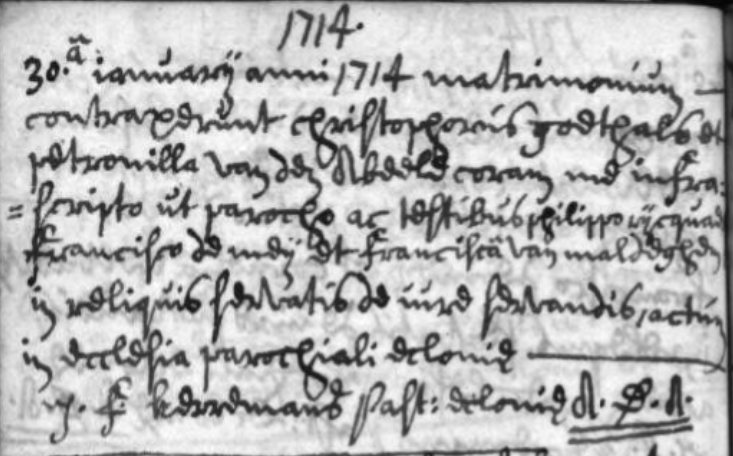 1714.
30.ã ianuarÿ anni 1714 matrimonium —
contraxerunt christophorus goethals et
petronilla van den Abeele coram me infra=
=scripto ut parocho ac testibus philippo rÿcquaert
francisco de meÿ et francisca van maldeghem
in reliquis servatis de iure servandis, actum
in ecclesia parochiali eclonie —
f. kerremans past: eclonie